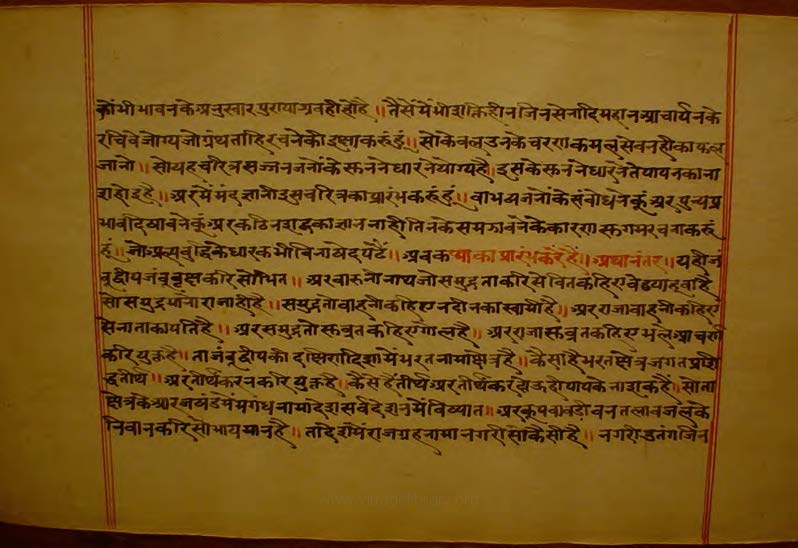 कोंभी भावनके अनुस्वार पुराया अवही होहै ॥ तैसेंमेंभी शक्तिहीन जिनसेनादि महान आचार्यनके
रचिवे जोग्य जो ग्रंथ ताहि रचनेकी इछा करूंहूं ॥ सो केवल उनके चरणकमल सेवनहीका फल
जानो ॥ सो यह चरित्र सज्जन जनोंके सुनने धारने योग्यहै इसके सुनने धारनेते पापनका ना
श होइहै ॥ अर में मंदज्ञानी इस चरित्रका प्रारंभ करूंहूं ॥ वा भव्यजनोंके संबोधनेकूं अर पुन्य प्र
भावदिषावनेकूं अर कठिन शब्दका ज्ञान नाही तिनके समझावनेके कारण सुगम रचना करूं
हूं ॥ जो अल्पबुद्धिके धारकभी विना षेद पढैं ॥ अब कथाका प्रारंभ करेंहैं ॥ अथानंतर ॥ यही जं
बूद्वीप जंबूवृक्ष करि सोभित ॥ अर वारुनीनाथ जो समुद्र ताकरि सेवित कहिए वेढ्या हुवाहै
सो समुद्र मानों राजाहीहै ॥ समुद्र तो वाहनी कहिए नदीनका स्वामीहै ॥ अर राजा वाहनी कहिए
सेना ताका पतिहै ॥ अर समुद्र तो सुव्रत कहिए गोलहै ॥ अर राजा सुव्रत कहिए भले आचरण
करि युक्तहै ॥ ता जंबूद्वीपकी दक्षिणदिशामें भरत नामा क्षेत्रहै ॥ कैसाहै भरतक्षेत्र जगत प्रशि
द्ध तीर्थ ॥ अर तीर्थकरन करि युक्तहै ॥ कैसेहैं तीर्थ अर तीर्थकर दोऊही पापके नाशकहै ॥ सो ता
क्षेत्रके आरजषंडमें मगध नामा देश सर्व देशनमें विख्यात ॥ अर कूप वावडी वन तलाव जलके
निवान करि सोभायमानहै ॥ ता देशमें राजग्रह नामा नगरी सो कैसीहै ॥ नगरी उतंग जिन